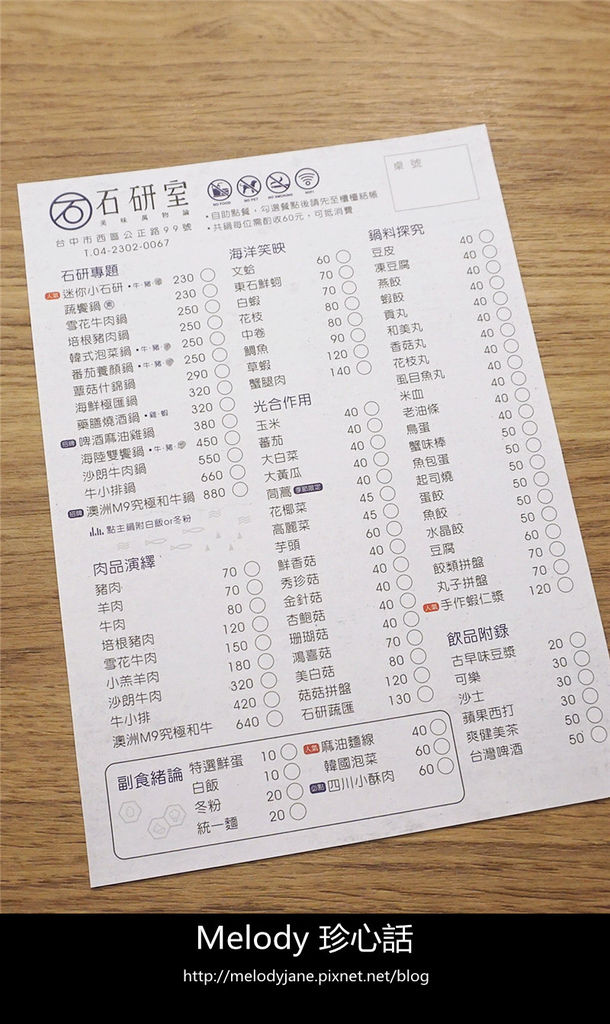 石研室
美味萬物論
台中市西區公正路99號
T.04-2302-0067
NO FOOD
NO PET
NO SMOKING
WIFI
•自助點餐，勾選餐點後請先至櫃檯結帳
•共鍋每位需酌收60元，可抵消費
桌號
石研專題
人氣 迷你小石研 •牛·豬· 230
蔬饗鍋 230
雪花牛肉鍋 250
培根豬肉鍋 250
韓式泡菜鍋 •牛·豬· 250
番茄養顏鍋 •牛·豬· 250
蕈菇什錦鍋 290
海鮮極匯鍋 320
藥膳燒酒鍋 •雞·蝦 320
招牌 啤酒麻油雞鍋 380
海陸雙饗鍋 •牛·豬· 450
沙朗牛肉鍋 550
牛小排鍋 660
招牌 澳洲M9究極和牛鍋 880
點主鍋附白飯or冬粉
肉品演繹
豬肉 70
羊肉 70
牛肉 80
培根豬肉 120
雪花牛肉 150
小羔羊肉 180
沙朗牛肉 320
牛小排 420
澳洲M9究極和牛 640
海洋笑映
文蛤 60
東石鮮蚵 70
白蝦 70
花枝 80
中卷 80
鯛魚 90
草蝦 120
蟹腿肉 140
光合作用
玉米 40
蕃茄 40
大白菜 40
大黃瓜 40
茼蒿 季節限定 40
花椰菜 45
高麗菜 45
芋頭 60
鮮香菇 40
秀珍菇 40
金針菇 40
杏鮑菇 40
珊瑚菇 40
鴻喜菇 70
美白菇 80
菇菇拼盤 120
石研蔬匯 130
鍋料探究
豆皮 40
凍豆腐 40
燕餃 40
蝦餃 40
貢丸 40
和美丸 40
香菇丸 40
花枝丸 40
虱目魚丸 40
米血 40
老油條 40
鳥蛋 50
蟹味棒 50
魚包蛋 50
起司燒 50
蛋餃 50
魚餃 50
水晶餃 50
豆腐 60
餃類拼盤 70
丸子拼盤 70
人氣 手作蝦仁漿 120
飲品附錄
古早味豆漿 20
可樂 30
沙士 30
蘋果西打 30
爽健美茶 50
台灣啤酒 50
副食緒論
特選鮮蛋 10
白飯 10
冬粉 20
統一麵 20
人氣 麻油麵線 40
韓國泡菜 60
必點 四川小酥肉 60
Melody 珍心話
http://melodyjane.pixnet.net/blog